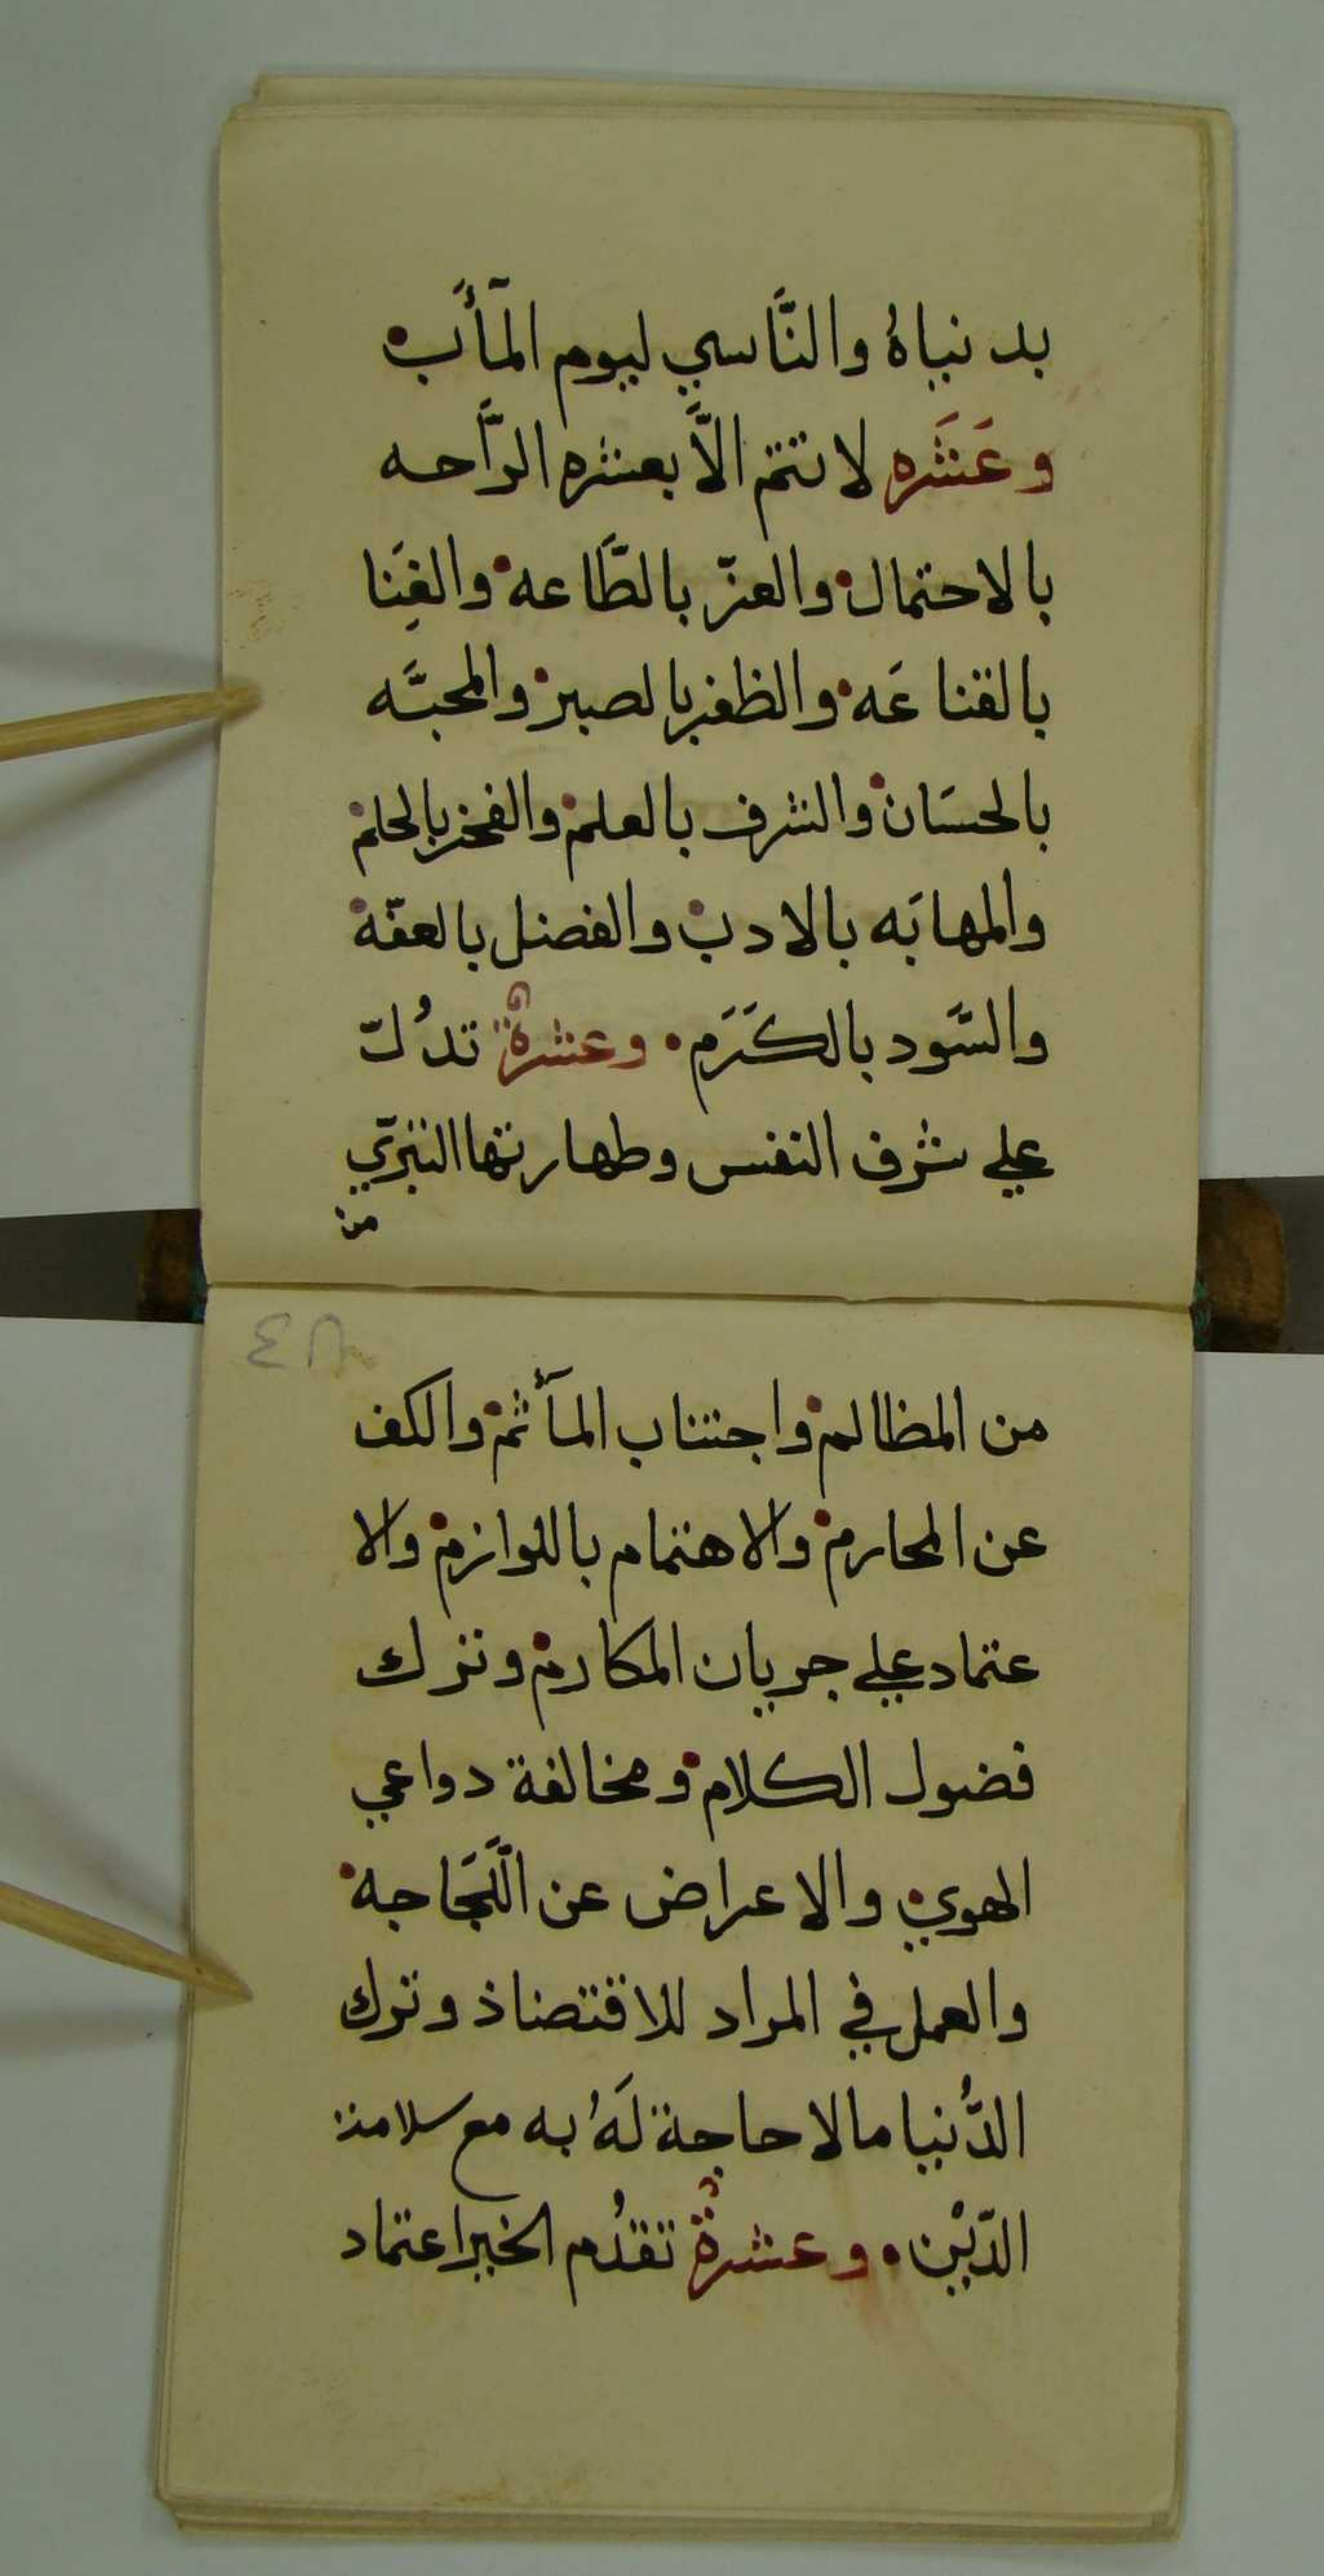 بدنياهُ والنَّاسي ليوم المَآَب
وعَشَره لا تتم الاَّ بعشره الرَّاحه
بالاحتمال والعزّ بالطَّاعه والغِنَا
بالقناعَه والظفر بالصبر والمحبَّه
بالحسَان والشرف بالعلم والفخر بالحلم
والمهابَه بالادب والفضل بالعفّه
والسَّود بالكَرَم وعشرةٌ تدُلّ
علي شرف النفس وطهارتها التبرّي
من
من المظالم واجتناب المآثم والكف
عن المحارم والاهتمام باللوازم والا
عتماد علي جريان المكارم وترك
فضول الكلام ومخالفة دواعي
الهوي والاعراض عن اللَّجَاجه
والعمل في المراد للاقتضاذ وترك
الدُّنيا مالا حاجة لَهُ به مع سلامة
الدّيْن وعشرةٌ تقدُم الخير اعتماد